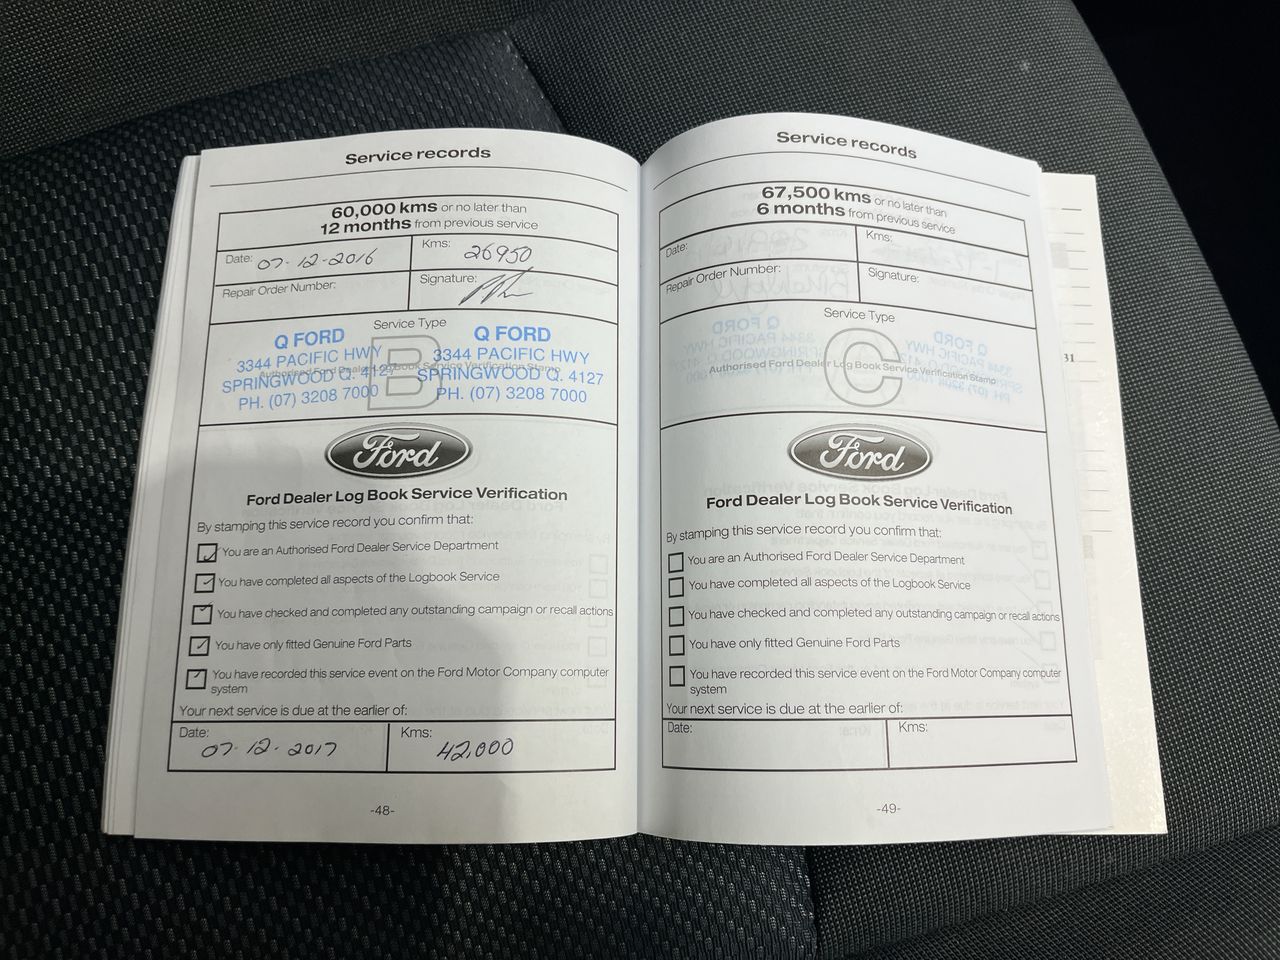 Service records
60,000 kms or no later than
12 months from previous service
Date: 07-12-2016
Kms: 26950
Repair Order Number:
Signature:
Service Type
B
Authorised Ford Dealer Log Book Service Verification Stamp
Q FORD
3344 PACIFIC HWY
SPRINGWOOD Q. 4127
PH. (07) 3208 7000
Q FORD
3344 PACIFIC HWY
SPRINGWOOD Q. 4127
PH. (07) 3208 7000
Ford
Ford Dealer Log Book Service Verification
By stamping this service record you confirm that:
You are an Authorised Ford Dealer Service Department
You have completed all aspects of the Logbook Service
You have checked and completed any outstanding campaign or recall actions
You have only fitted Genuine Ford Parts
You have recorded this service event on the Ford Motor Company computer
system
Your next service is due at the earlier of:
Date: 07-12-2017
Kms: 42,000
-48-
Service records
67,500 kms or no later than
6 months from previous service
Date:
Kms:
Repair Order Number:
Signature:
Service Type
C
Authorised Ford Dealer Log Book Service Verification Stamp
Ford
Ford Dealer Log Book Service Verification
By stamping this service record you confirm that:
You are an Authorised Ford Dealer Service Department
You have completed all aspects of the Logbook Service
You have checked and completed any outstanding campaign or recall actions
You have only fitted Genuine Ford Parts
You have recorded this service event on the Ford Motor Company computer
system
Your next service is due at the earlier of:
Date:
Kms:
-49-
31